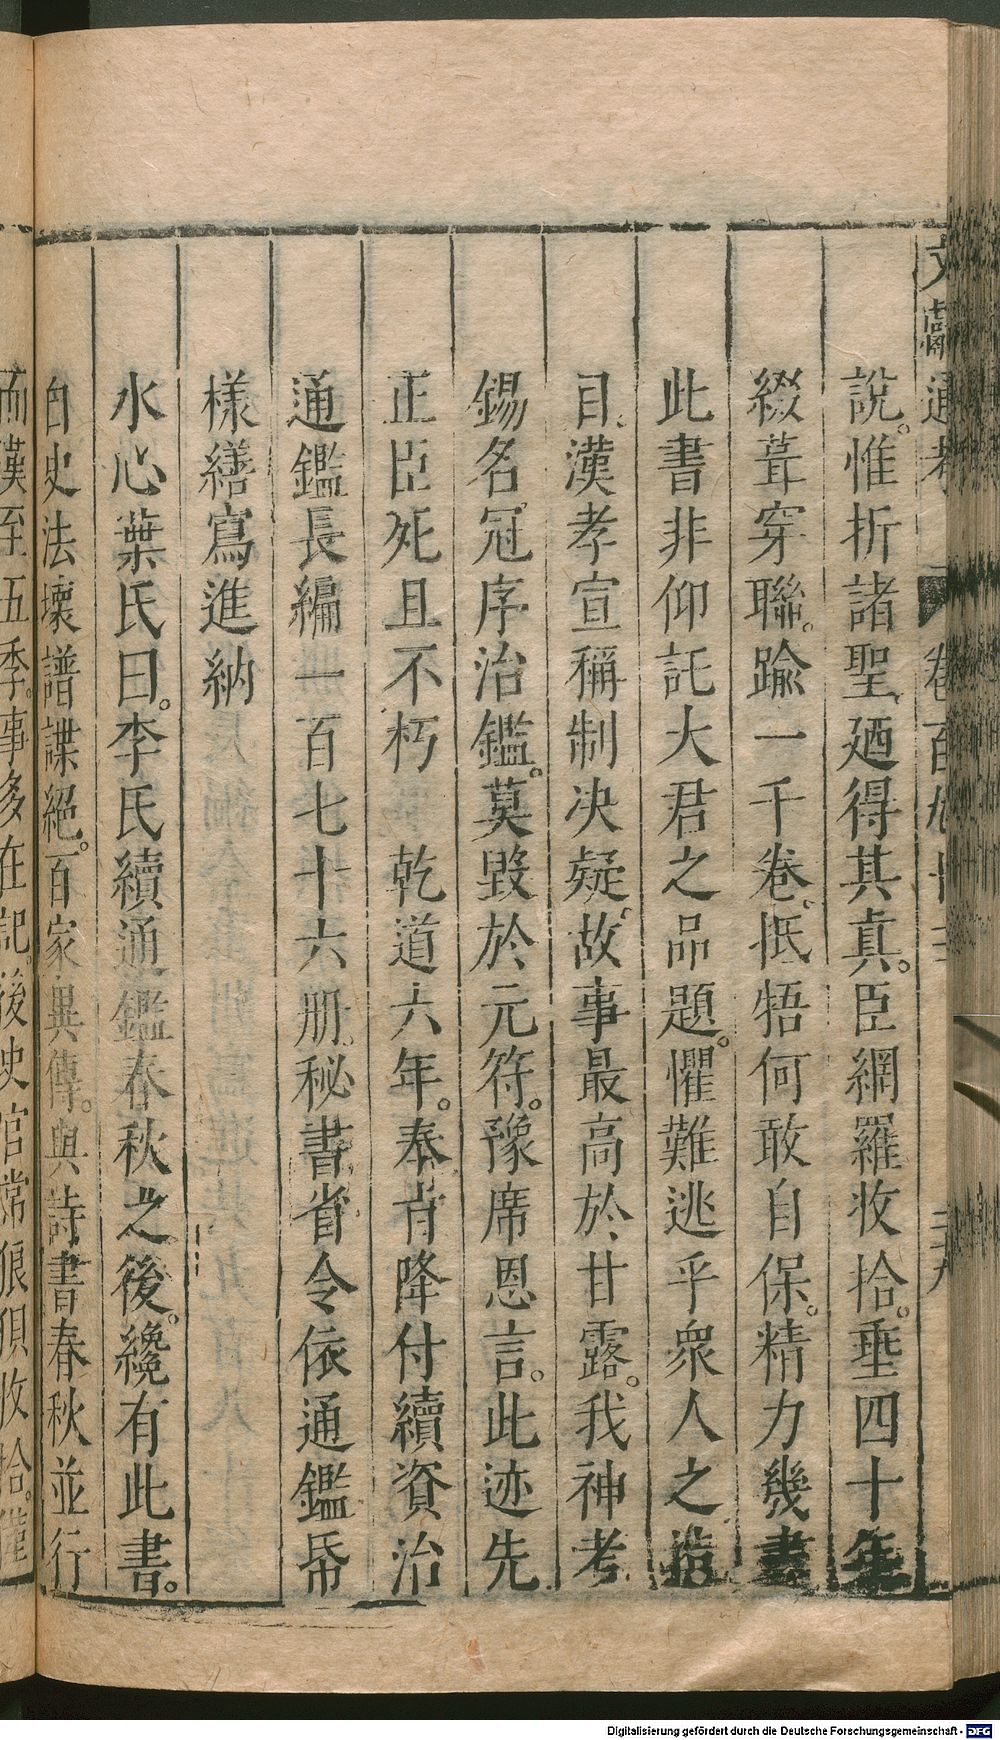 文獻通考 卷百九十三 二十八
說。惟折諸聖廼得其真。臣網羅收拾。垂四十年
綴葺穿聯。踰一千卷。抵牾何敢自保。精力幾盡
此書非仰託大君之品題。懼難逃乎衆人之指
目。漢孝宣稱制決疑。故事最高於甘露。我神考
錫名。冠序治鑑。莫毀於元符。豫席恩言。此迹先
正臣死且不朽 乾道六年。奉旨降付續資治
通鑑長編一百七十六册。秘書省令依通鑑帋
樣繕寫進納
水心葉氏曰。李氏續通鑑春秋之後。纔有此書。
自史法壞譜諜絕。百家異傳。與詩書春秋並行
而漢至五季。事多在記。後史官常狼狽收拾。僅
Digitalisierung gefördert durch die Deutsche Forschungsgemeinschaft - DFG